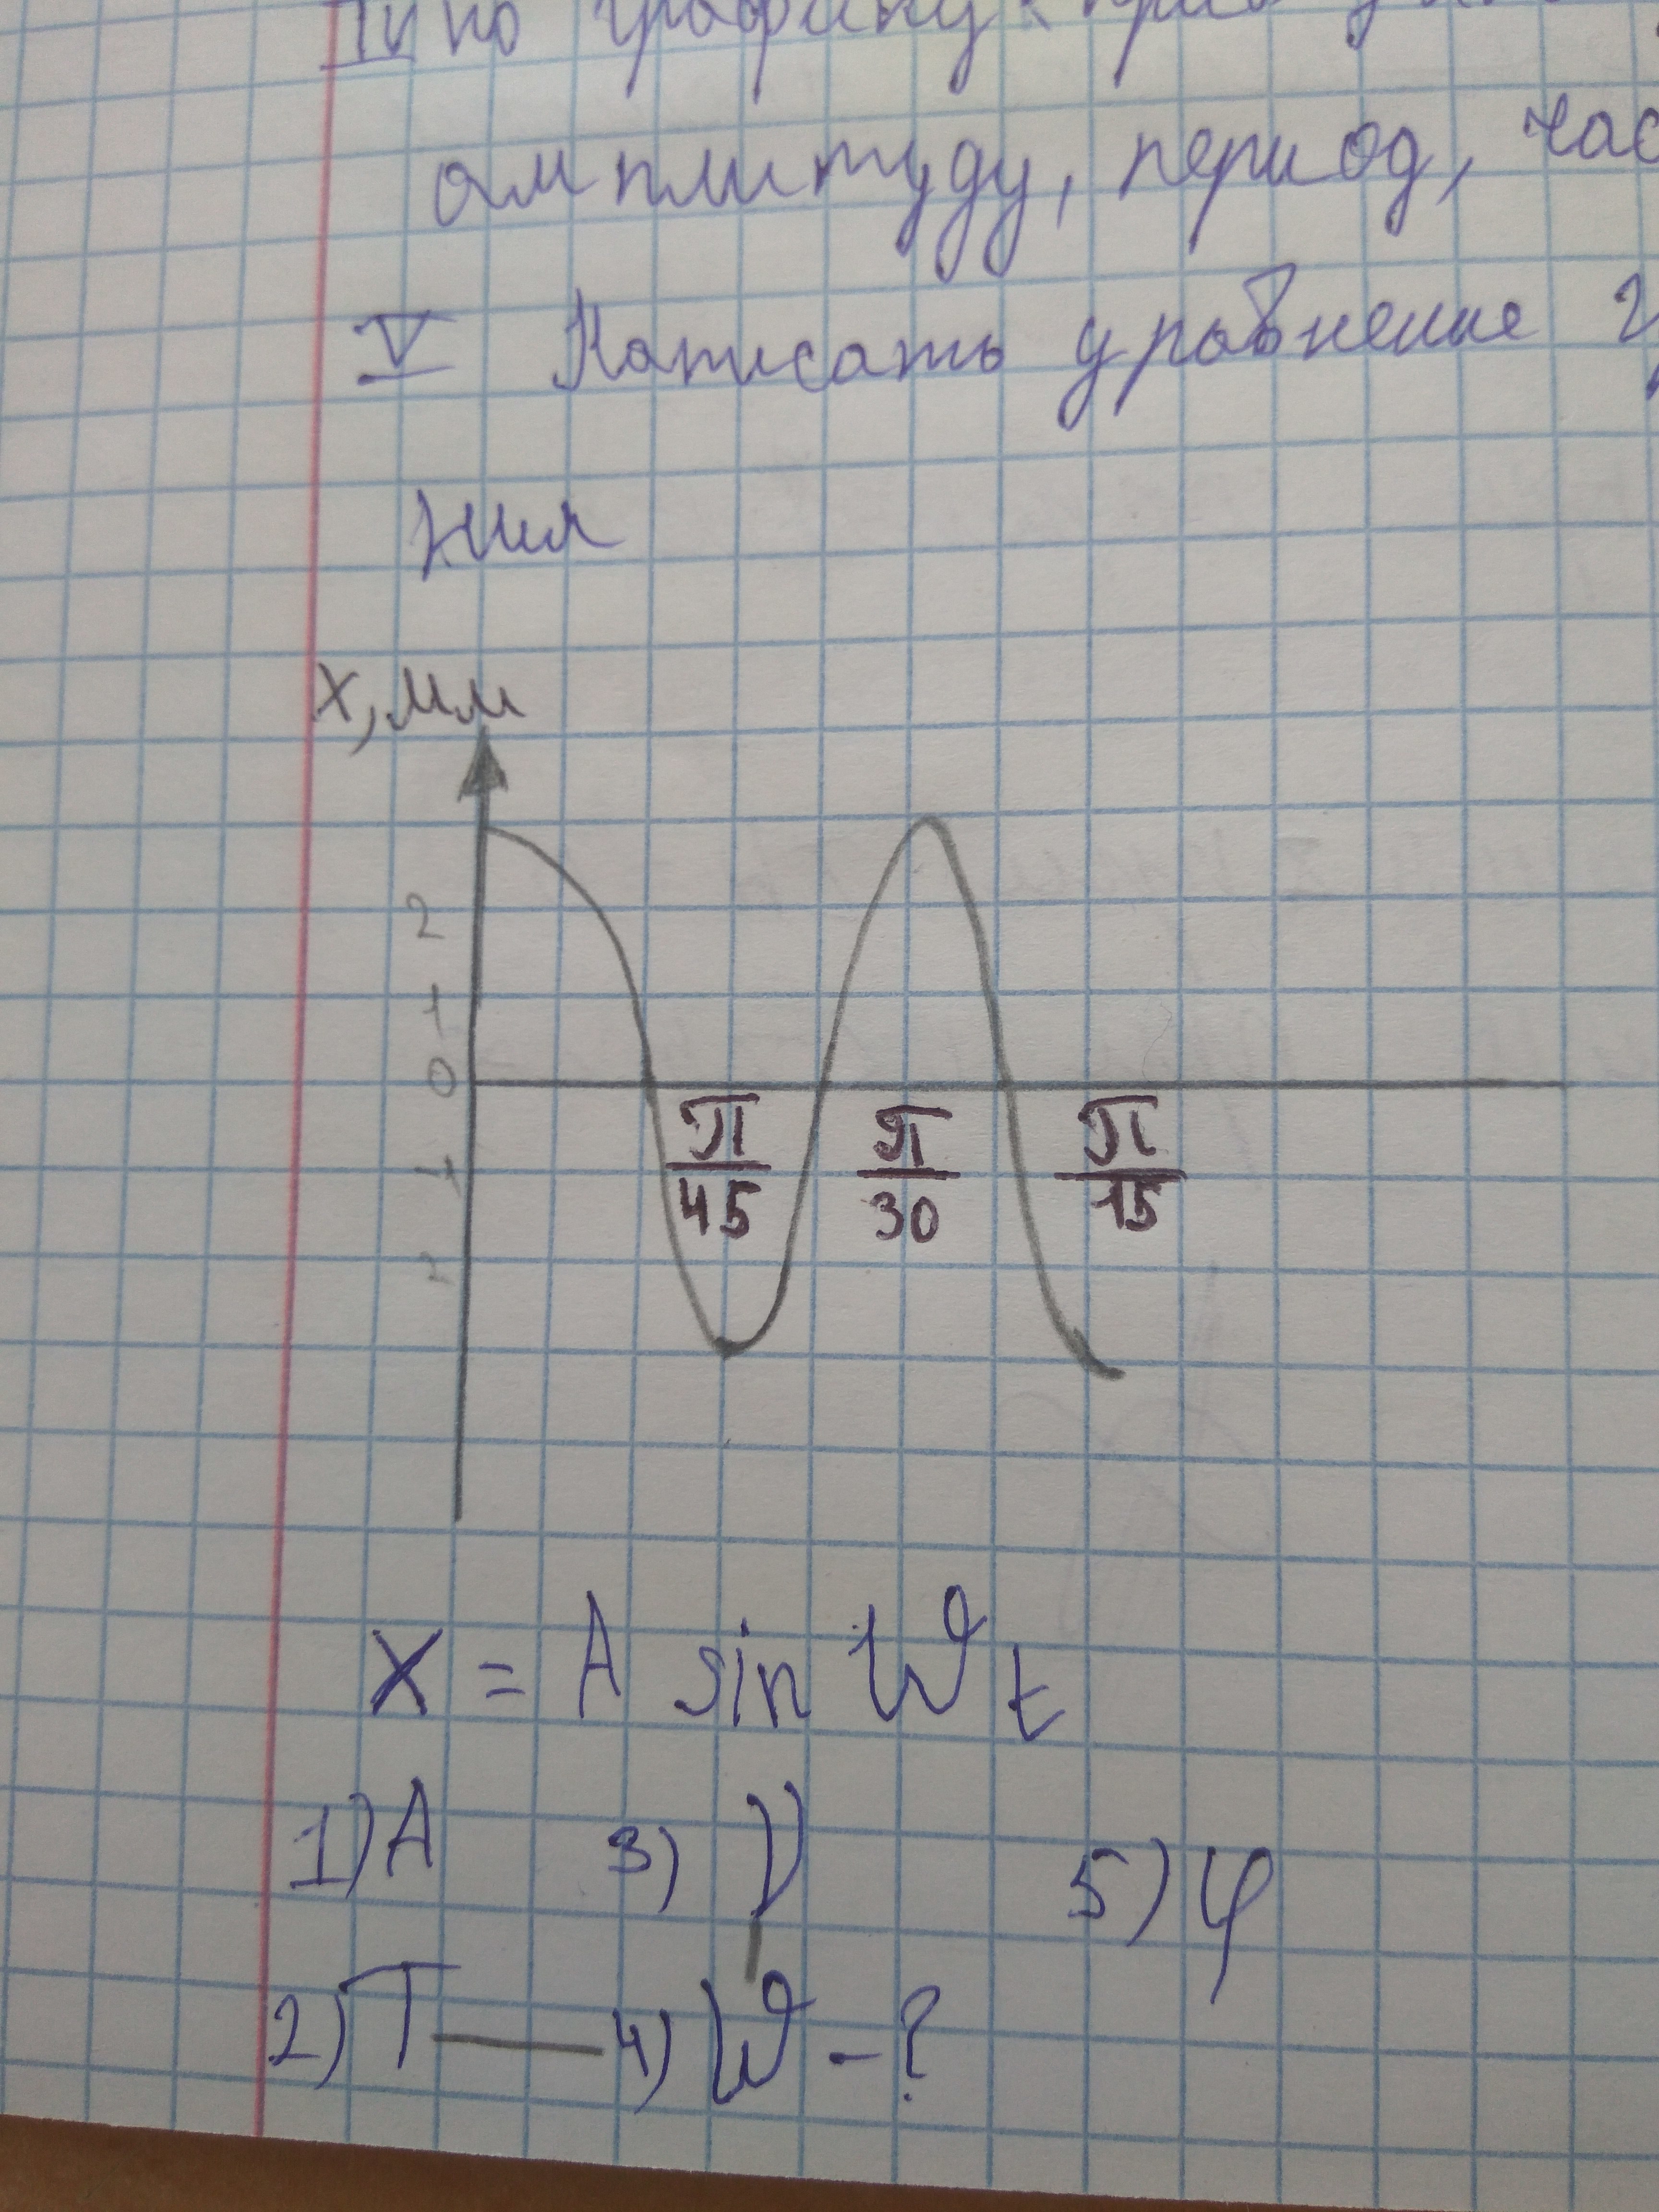 IV по графику
амплитуду, период,
V Написать уравнение
ния
x, мм
2
1
0
π/45 π/30 π/15
1
2
X = A sin W t
1) A 3) V 5) φ
2) T — 4) W - ?